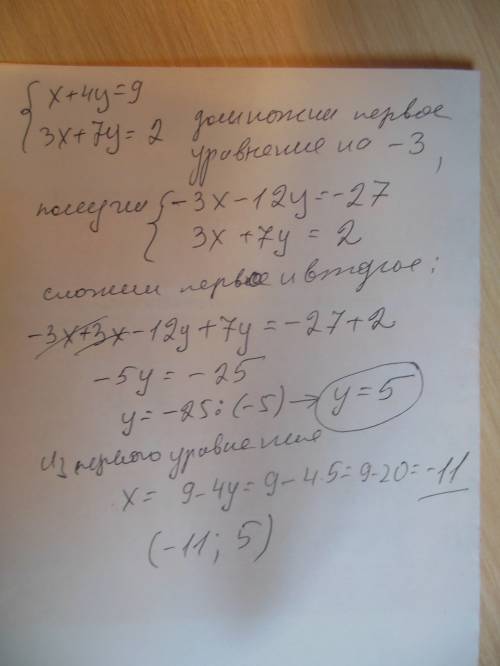 x+4y=9
3x+7y=2 домножим первое
уравнение на -3,
получим {-3x-12y=-27
3x+7y=2
сложим первое и второе:
-3x+3x-12y+7y=-27+2
-5y=-25
y=-25:(-5)→ y=5
Из первого уравнения
x= 9-4y=9-4·5=9-20=-11
(-11; 5)